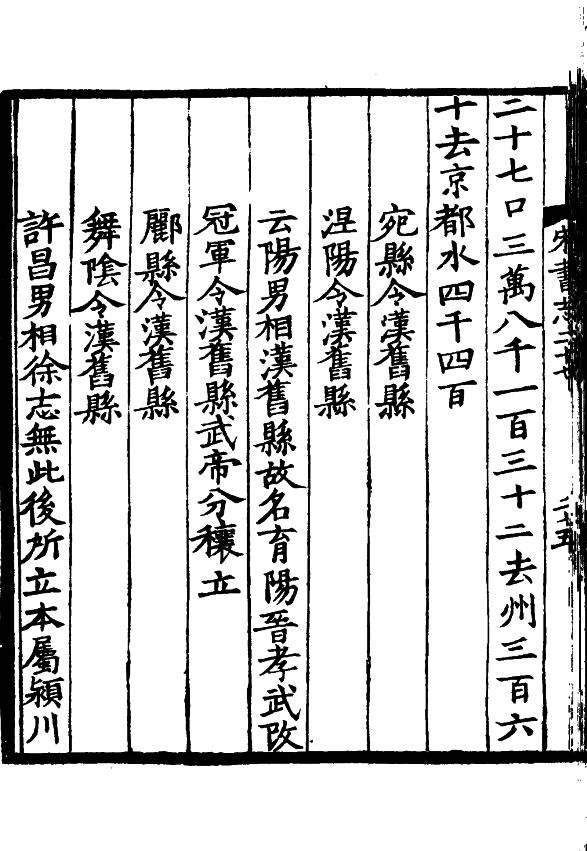 宋書志二十七 二十五
二十七口三萬八千一百三十二去州三百六
十去京都水四千四百
宛縣令漢舊縣
涅陽令漢舊縣
云陽男相漢舊縣故名育陽晉孝武改
冠軍令漢舊縣武帝分穰立
酈縣令漢舊縣
舞陰令漢舊縣
許昌男相徐志無此後所立本屬潁川